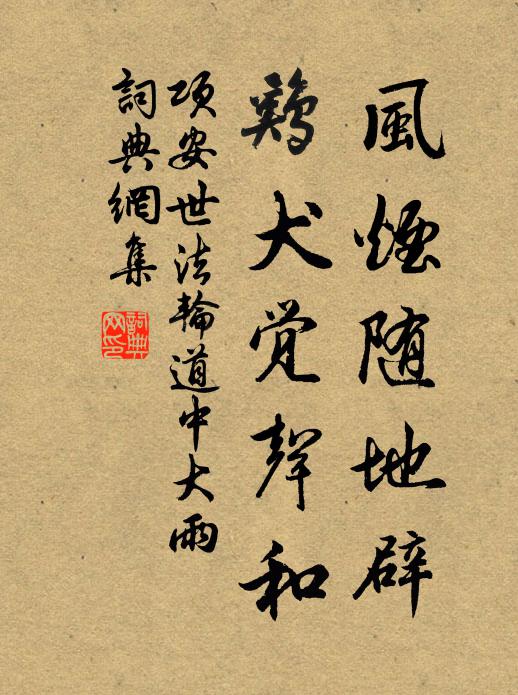 風煙随地辟
鷄犬覚聲和
項安世法輪道中大雨
詞典網集
詞典
网印